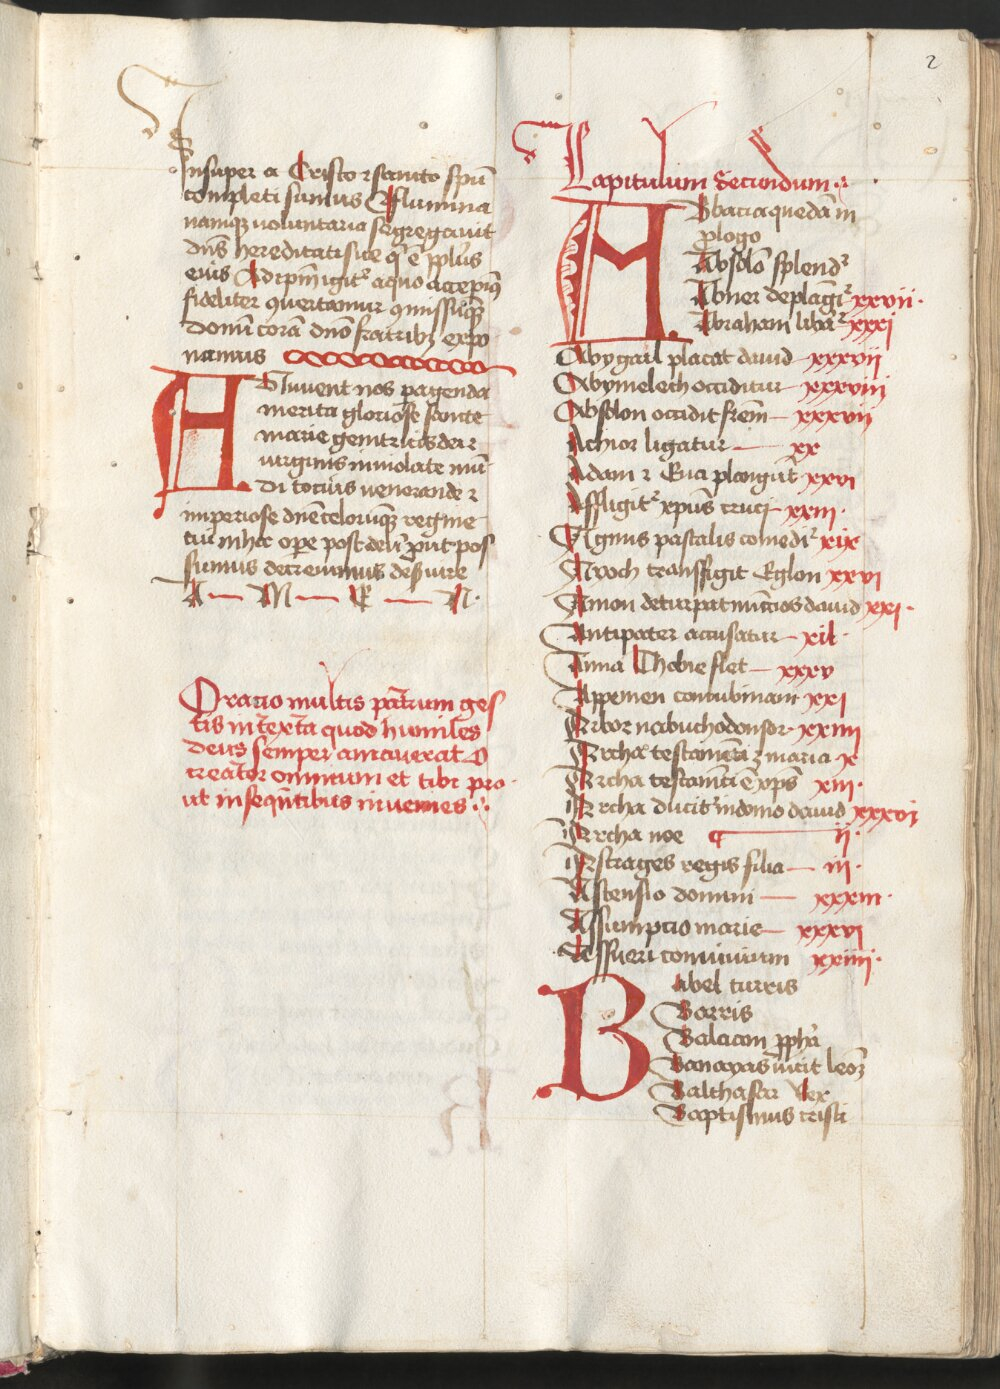 2
Insuper a Cristo ⁊ sancto spū
completi sumus Pluuia
namqꝫ voluntaria segregauit
dn̄s hereditati sue q̄ ē ppl̓us
eius Ad xp̄m igitᷣ a quo accepim⁹
fideliter ꝯuertamur
domū corā dn̄o fratribꝫ expo
namus
Diuuent nos ꝑ agenda
merita gloriose sancte
marie genitricis dei ⁊
virginis inuiolate mū
di tocius venerande ⁊
imperiose dn̄e celorūqꝫ regine
cui in hoc oꝑe post deū ꝓut pos
sumus decreuimus desuire
A — M — E — N·
Oracio multis patrum ges
tis intexta quod humiles
deus semper
creator omnium et tibi pro
ut in seqn̄tibus inuenies
Capitulum Secundum
A
Bbacia quedā in
ꝓlogo
Absolō splendᷣ
Abner deplāgiᷣ xxvii·
Abraham libaᷣ xxxi
Abygail placat dauid xxxvii
Abymelech occiditur xxxviii
Absolon occidit frēm xxxvii
Achior ligatur xx
Adam ⁊ Eua plangūt xxvi
Affligitᷣ xpūs cruci xxiii·
Agnus pascalis comediᷣ xix
Ayoch transfigit Eglon xxvi
Amon deturpat nūccios dauid xxi·
Antipater accusatur xli·
Anna Thobie flet xxxv
Appemen concubinam xxi
Arbor nabuchodonosor xxiiii
Archa testamēti ⁊ maria x
Archa testamēti ē xps̄ xiii·
Archa ducitᷣ in domo dauid xxxvi
Archa noe ii·
Astrages regis filia iii·
Ascensio domini xxxiii·
Assumpcio marie xxxvi
Assueri conuiuium xxiiii·
B
Abel turris
Barris
Balaam ꝓpha
Banayas vicit leoē
Balthasar Rex
Baptismus cristi